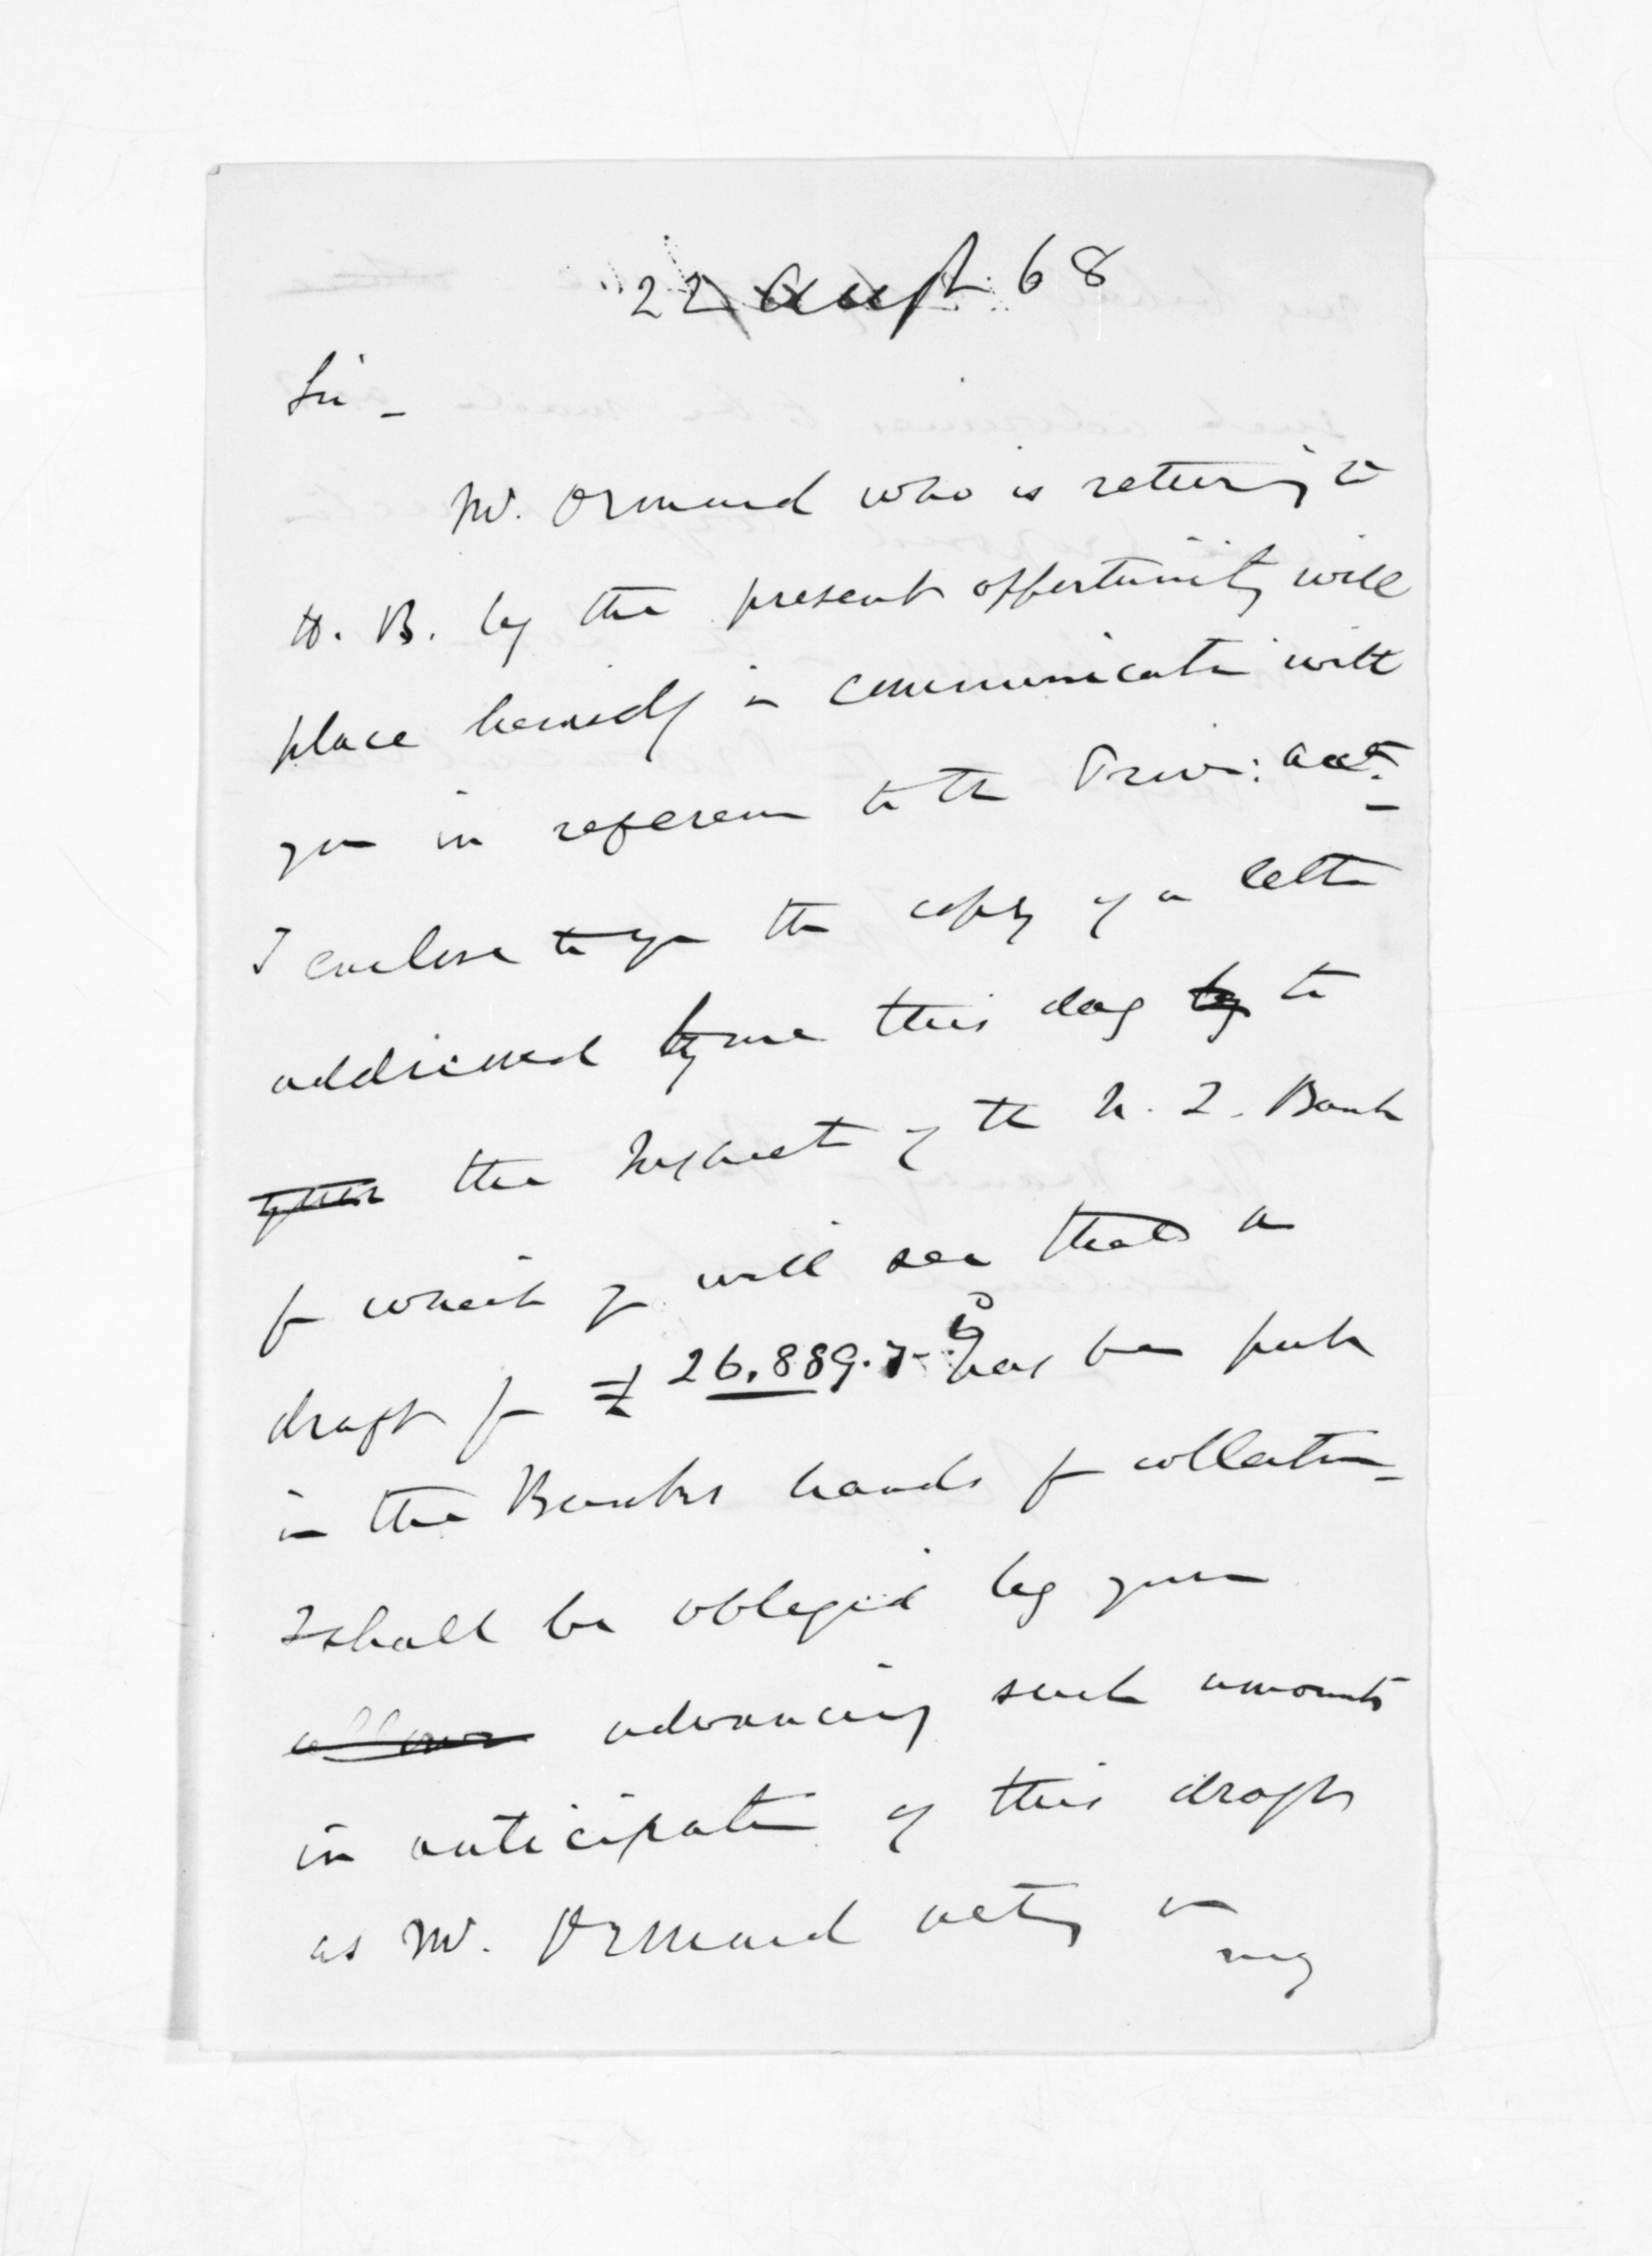 22 Augt. 68
Sir -
Mr. Ormond who is returning to
H. B. by the present opportunity will
place himself in communication with
you in reference to the Prov: acct.
I enclose to you the copy of a letter
addressed by me this day by to
the Inspector of the N. Z. Bank
for which you will see that a
draft for £ 26,889.7. has been put
in the Banks hands for collection
I shall be obliged by your
allow advancing such amounts
in anticipation of this draft
as Mr. Ormond acting on
my